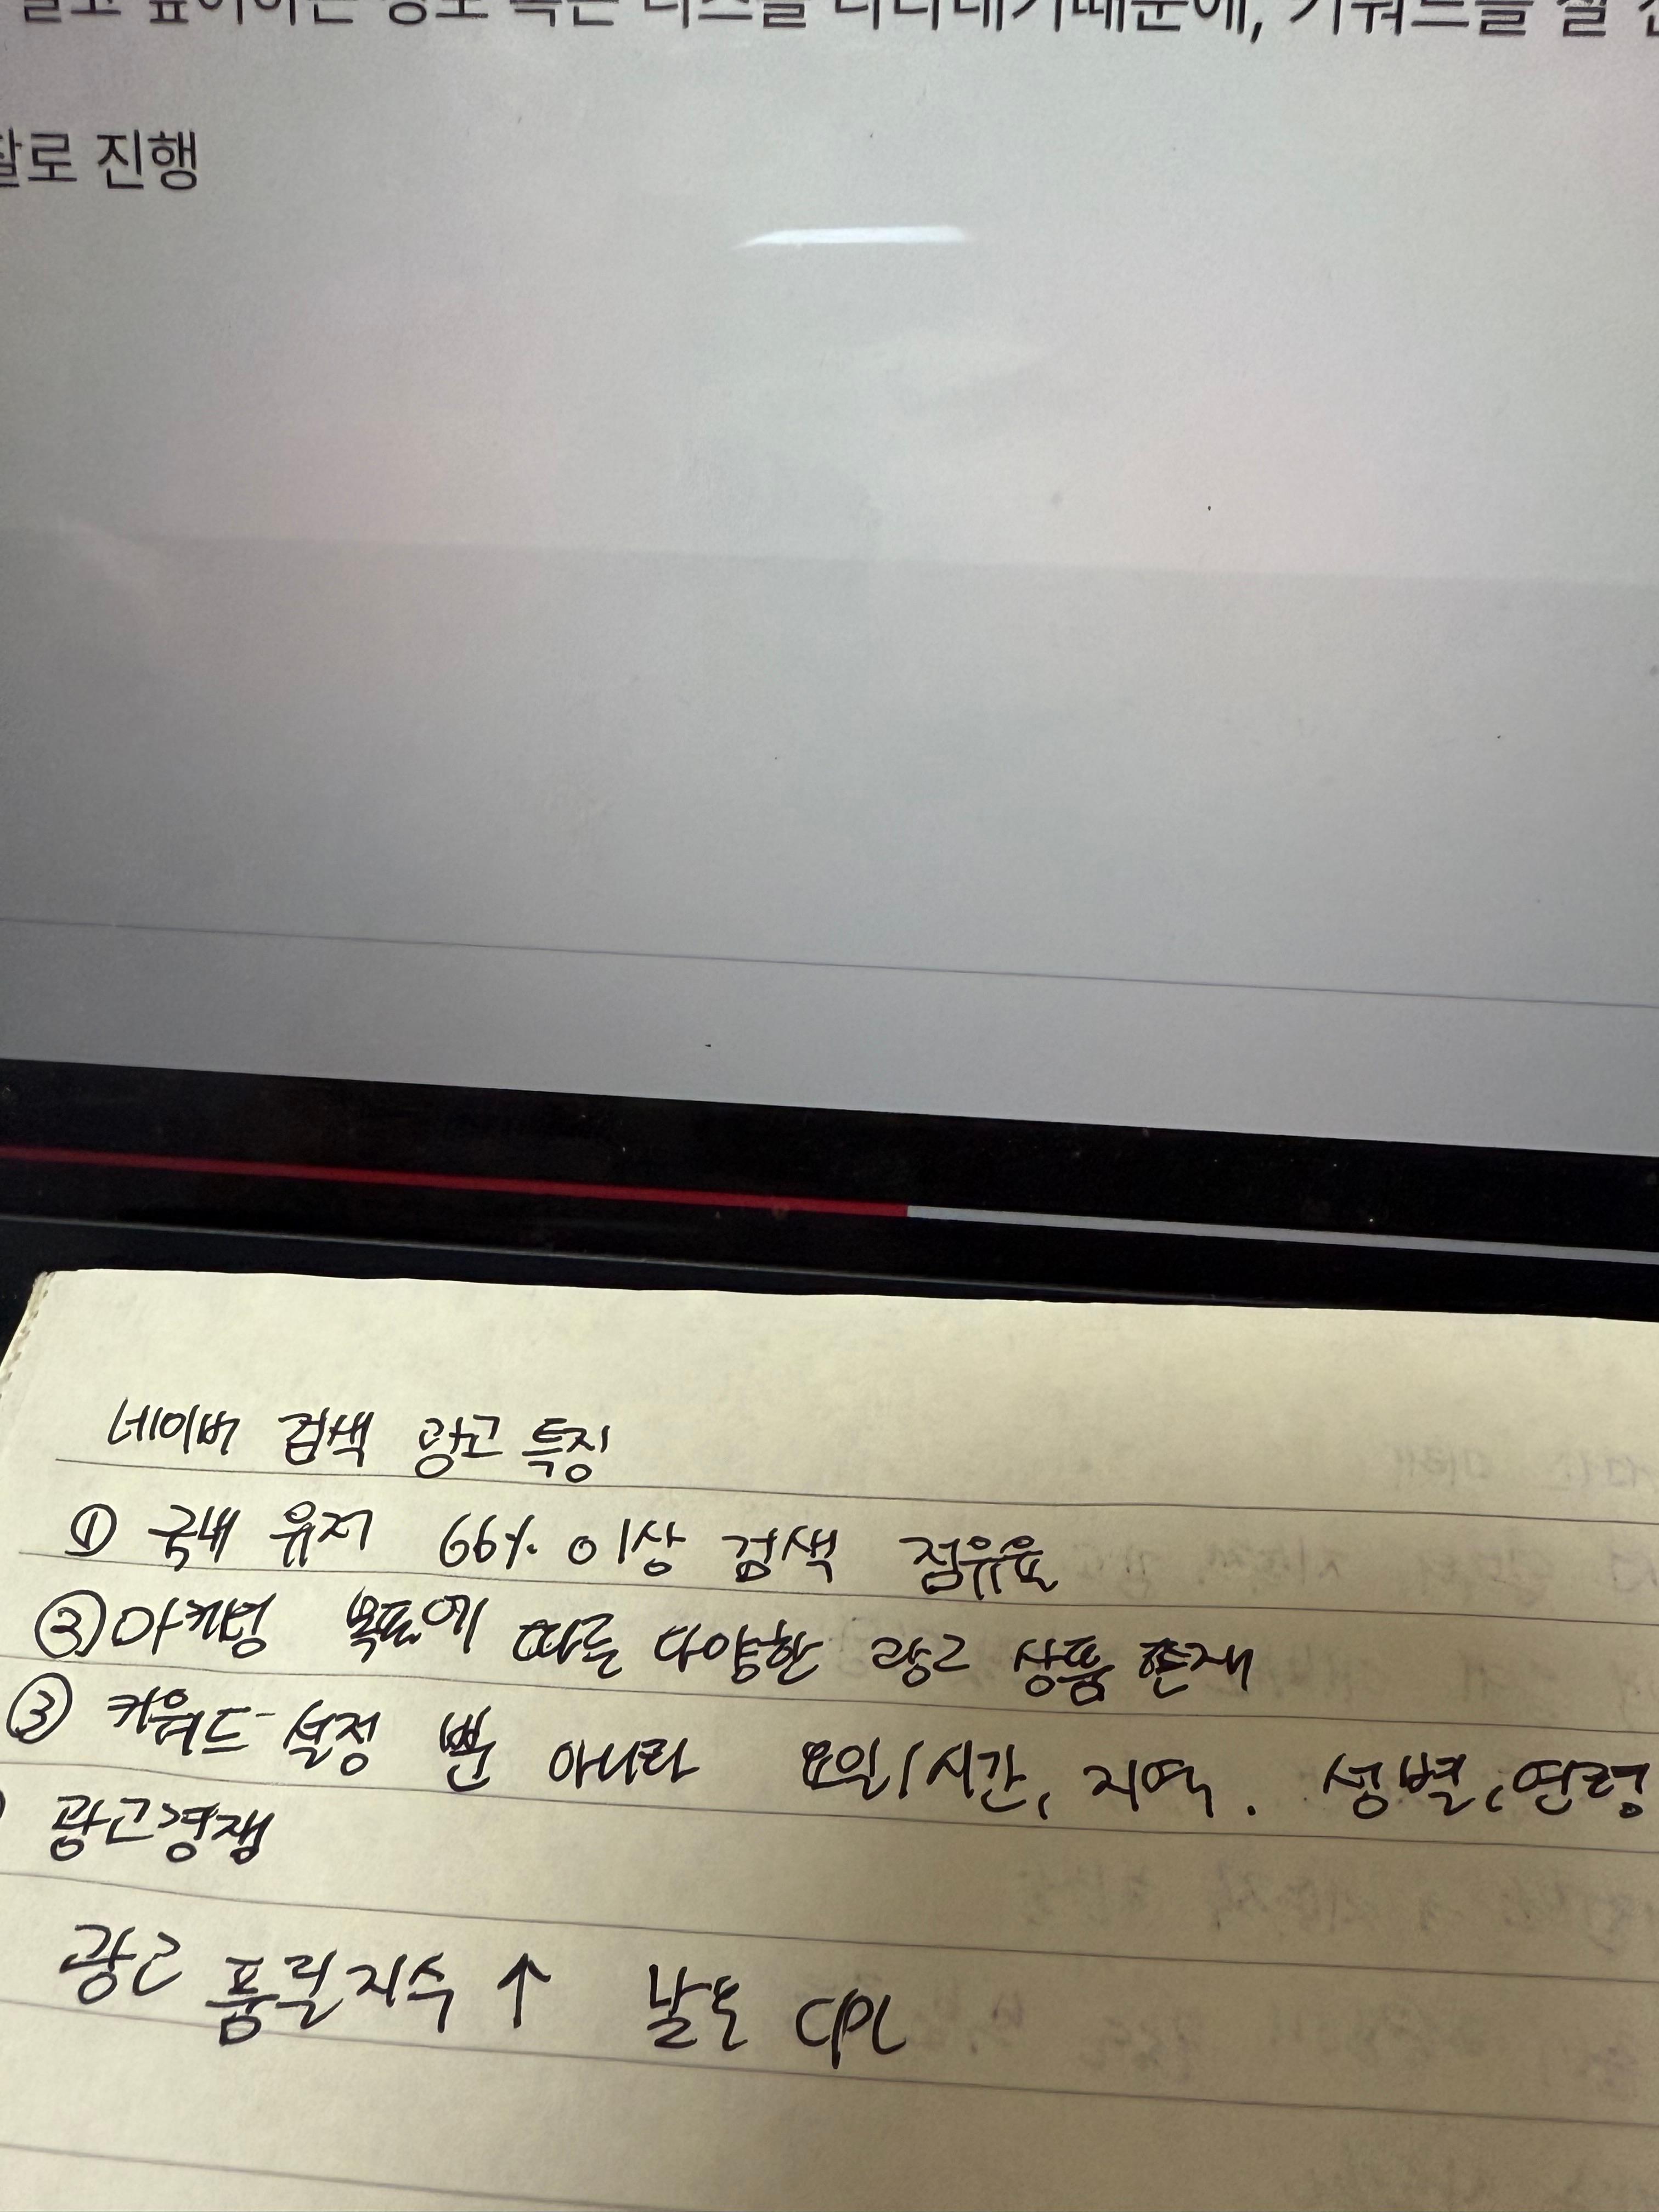 알고 싶어하는 정보 혹은 니즈를 나타내기때문에, 키워드를 잘
찰로 진행
네이버 검색 광고 특징
① 국내 유저 66% 이상 검색 점유율
② 마케팅 목표에 따른 다양한 광고 상품 존재
③ 키워드 설정 뿐 아니라 요일/시간, 지역. 성별, 연령
광고경쟁
광고 품질지수 ↑ 낮은 CPC